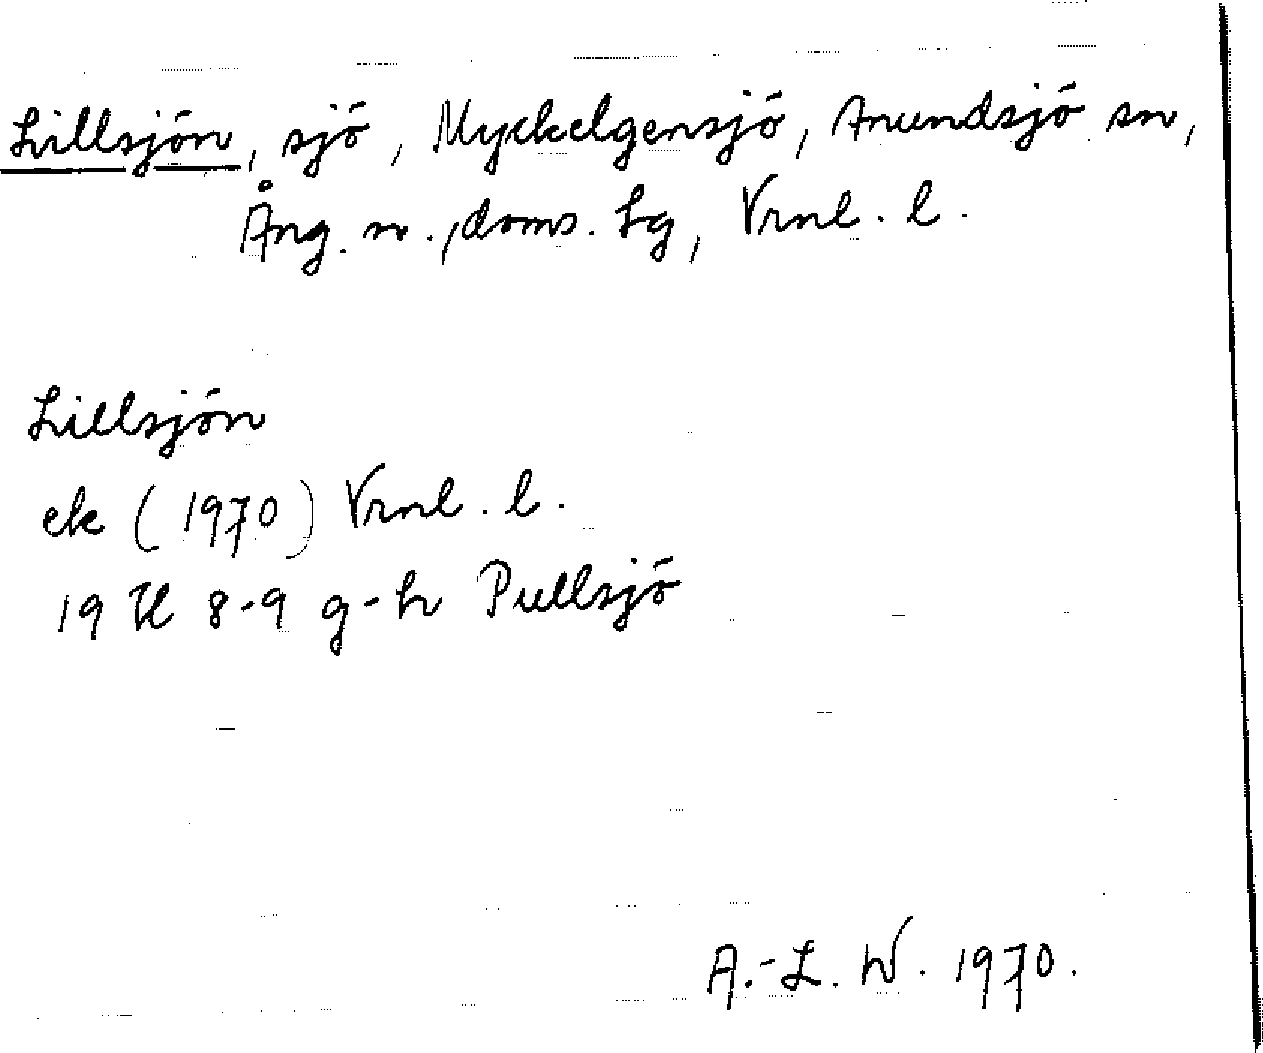 Lillsjön, sjö, Myckelgensjö, Anundsjö sn,
Ång. n., doms. lg, Vrnl. l.
Lillsjön
ek (1970) Vrnl. l.
19 H 8-9 g-h Pullsjö
A.-L. W. 1970.